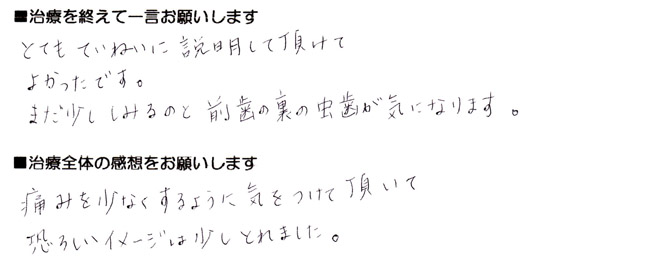 ■治療を終えて一言お願いします
とてもていねいに説明して頂けて
よかったです。
まだ少ししみるのと前歯の裏の虫歯が気になります。
■治療全体の感想をお願いします
痛みを少なくするように気をつけて頂いて
恐ろしいイメージは少しとれました。